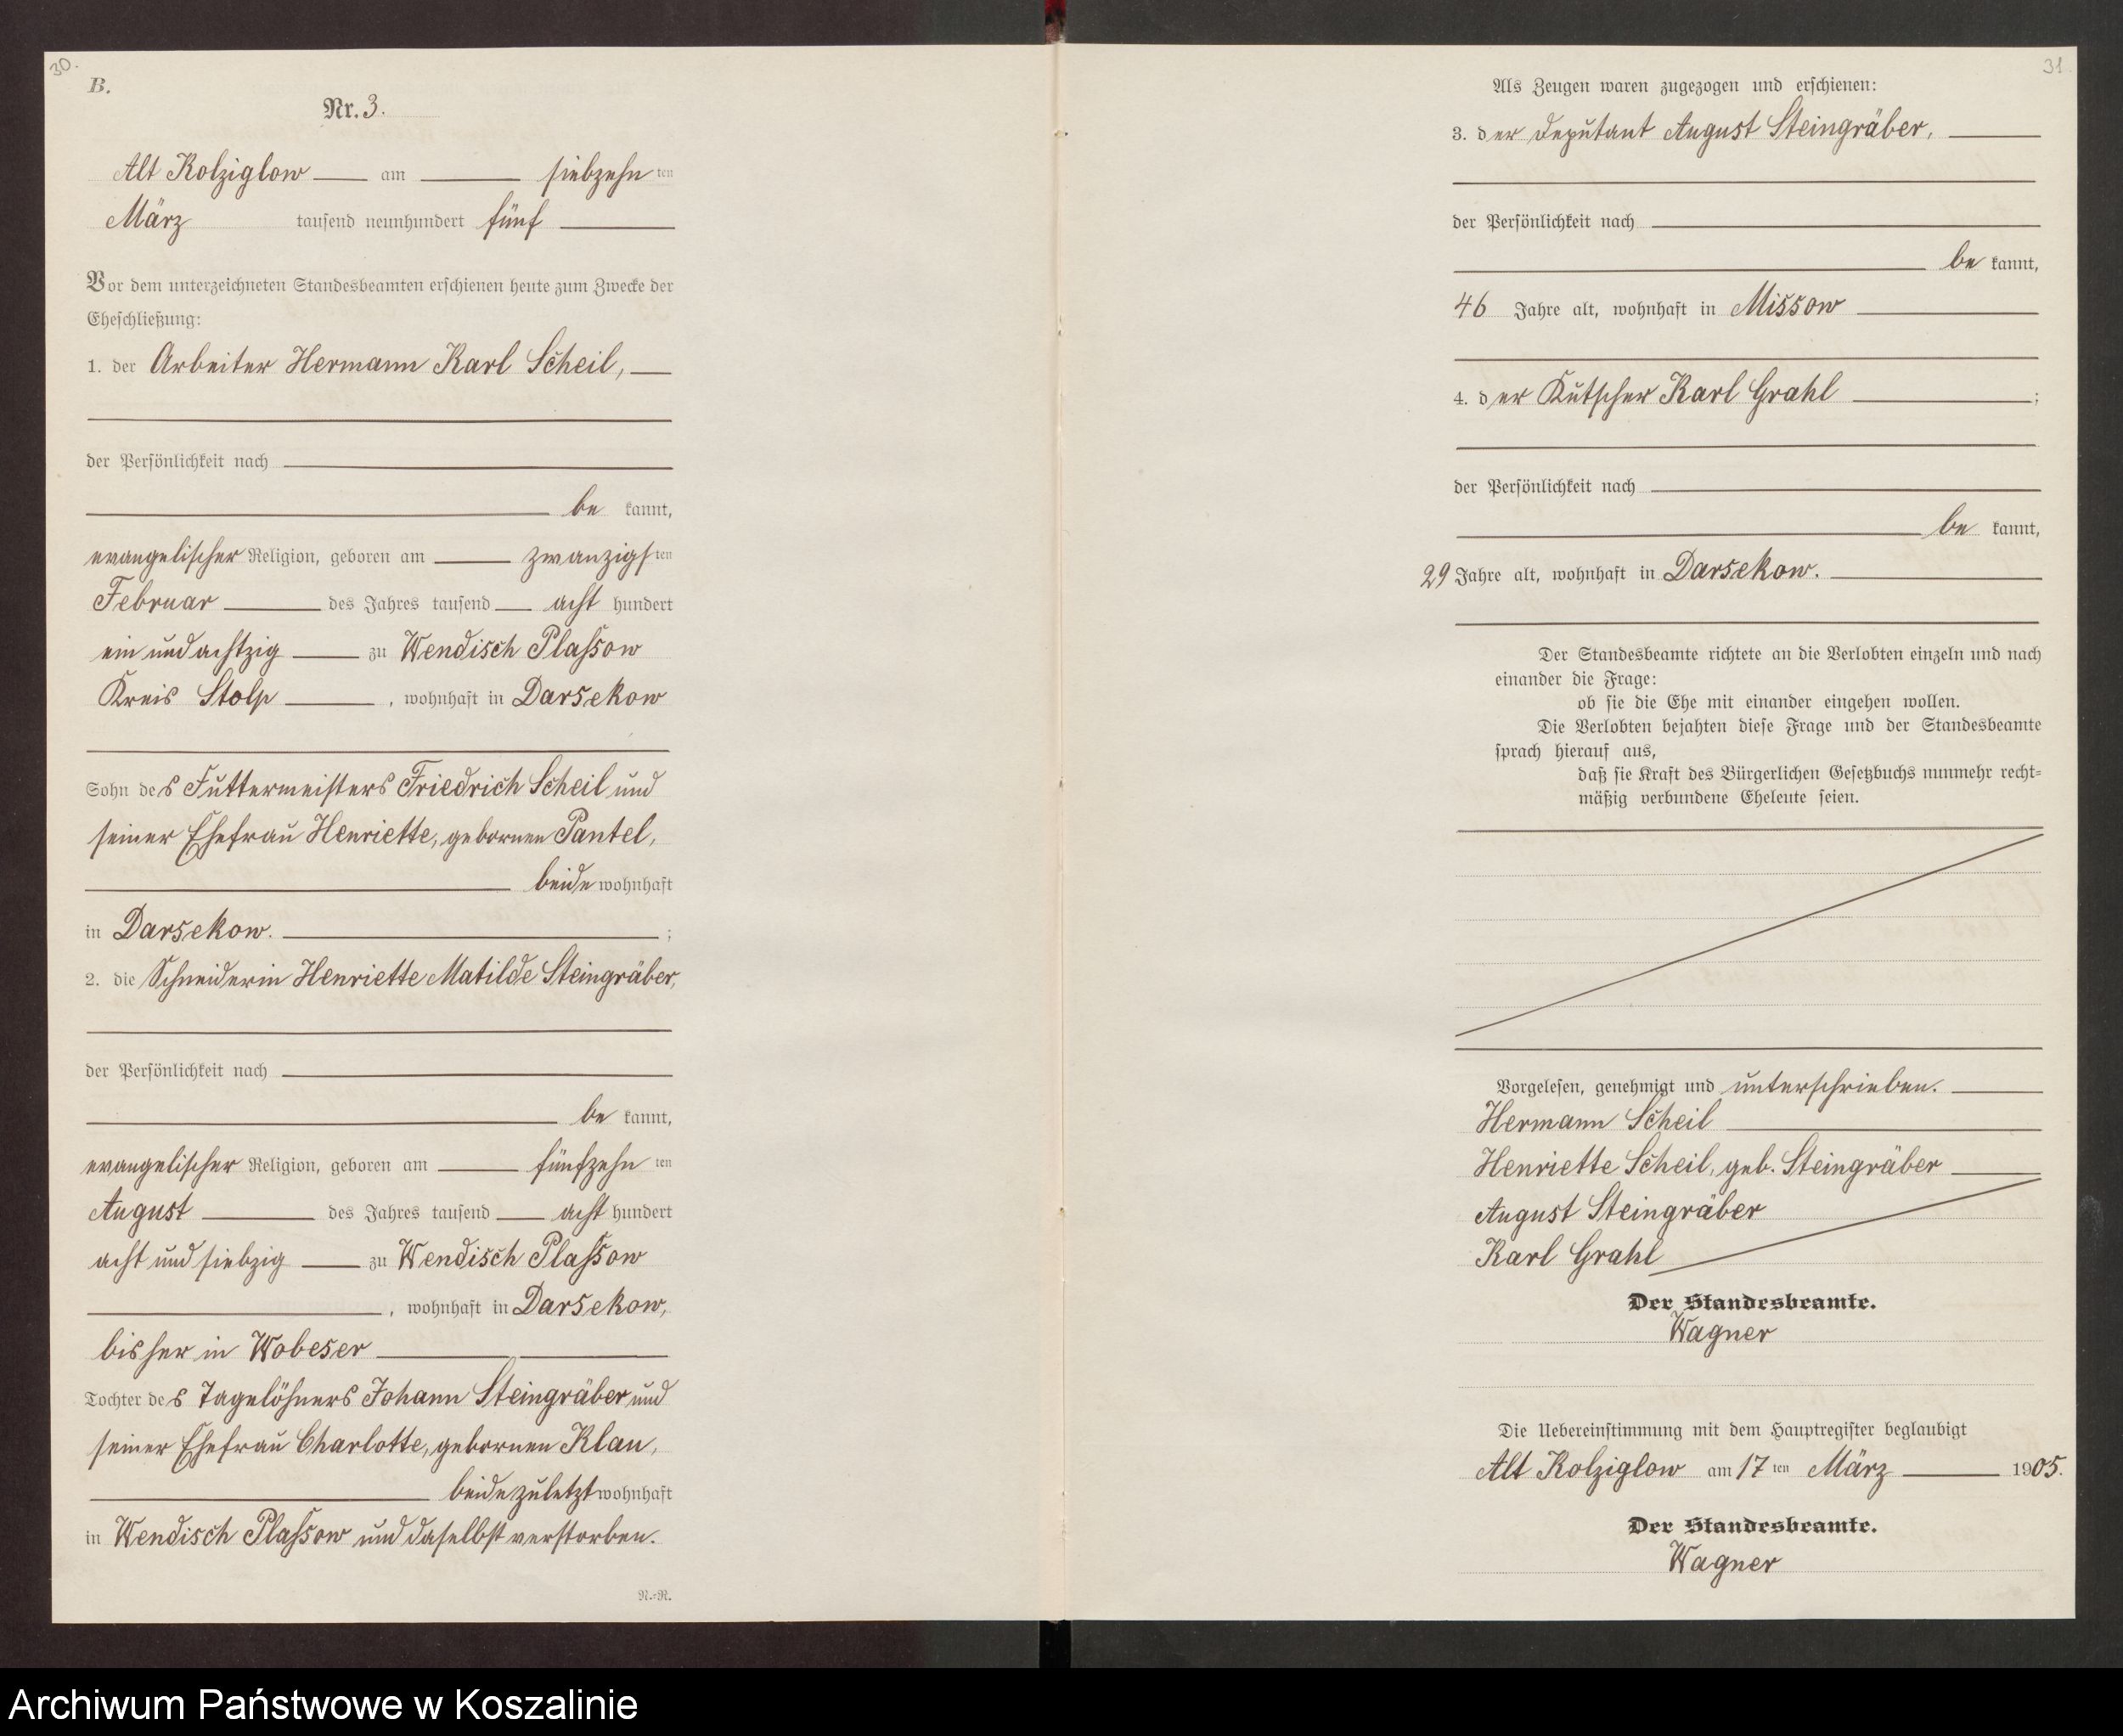 30.
B.
Nr. 3.
Alt Kolziglow am siebzehn ten
März tausend neunhundert fünf
Vor dem unterzeichneten Standesbeamten erschienen heute zum Zwecke der
Eheschließung:
1. der Arbeiter Hermann Karl Scheil,
der Persönlichkeit nach
be kannt,
evangelischer Religion, geboren am zwanzigs ten
Februar des Jahres tausend acht hundert
ein und achtzig zu Wendisch Plassow
Kreis Stolp , wohnhaft in Darsekow
Sohn des Futtermeisters Friedrich Scheil und
seiner Ehefrau Henriette, gebornen Pantel,
beide wohnhaft
in Darsekow. ;
2. die Schneiderin Henriette Matilde Steingräber,
der Persönlichkeit nach
be kannt,
evangelischer Religion, geboren am fünfzehn ten
August des Jahres tausend acht hundert
acht und siebzig zu Wendisch Plassow
, wohnhaft in Darsekow,
bisher in Wobeser
Tochter des Tagelöhners Johann Steingräber und
seiner Ehefrau Charlotte, gebornen Klau,
beide zuletzt wohnhaft
in Wendisch Plassow und daselbst verstorben.
N.-N.
31.
Als Zeugen waren zugezogen und erschienen:
3. der Deputant August Steingräber,
der Persönlichkeit nach
be kannt,
46 Jahre alt, wohnhaft in Missow
4. der Kutscher Karl Grahl ;
der Persönlichkeit nach
be kannt,
29 Jahre alt, wohnhaft in Darsekow.
Der Standesbeamte richtete an die Verlobten einzeln und nach
einander die Frage:
ob sie die Ehe mit einander eingehen wollen.
Die Verlobten bejahten diese Frage und der Standesbeamte
sprach hierauf aus,
daß sie Kraft des Bürgerlichen Gesetzbuchs nunmehr recht-
mäßig verbundene Eheleute seien.
Vorgelesen, genehmigt und unterschrieben.
Hermann Scheil
Henriette Scheil, geb. Steingräber
August Steingräber
Karl Grahl
Der Standesbeamte.
Wagner
Die Uebereinstimmung mit dem Hauptregister beglaubigt
Alt Kolziglow am 17 ten März 1905.
Der Standesbeamte.
Wagner
Archiwum Państwowe w Koszalinie